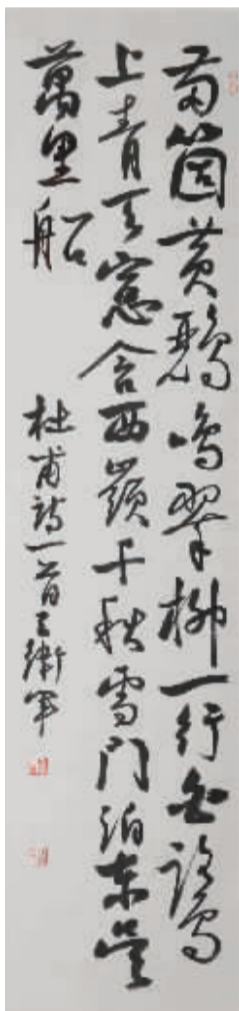 两箇黄鸝鳴翠柳一行白鷺
上青天窗含西嶺千秋雪门泊東吴
萬里船
杜甫诗一首王衛军